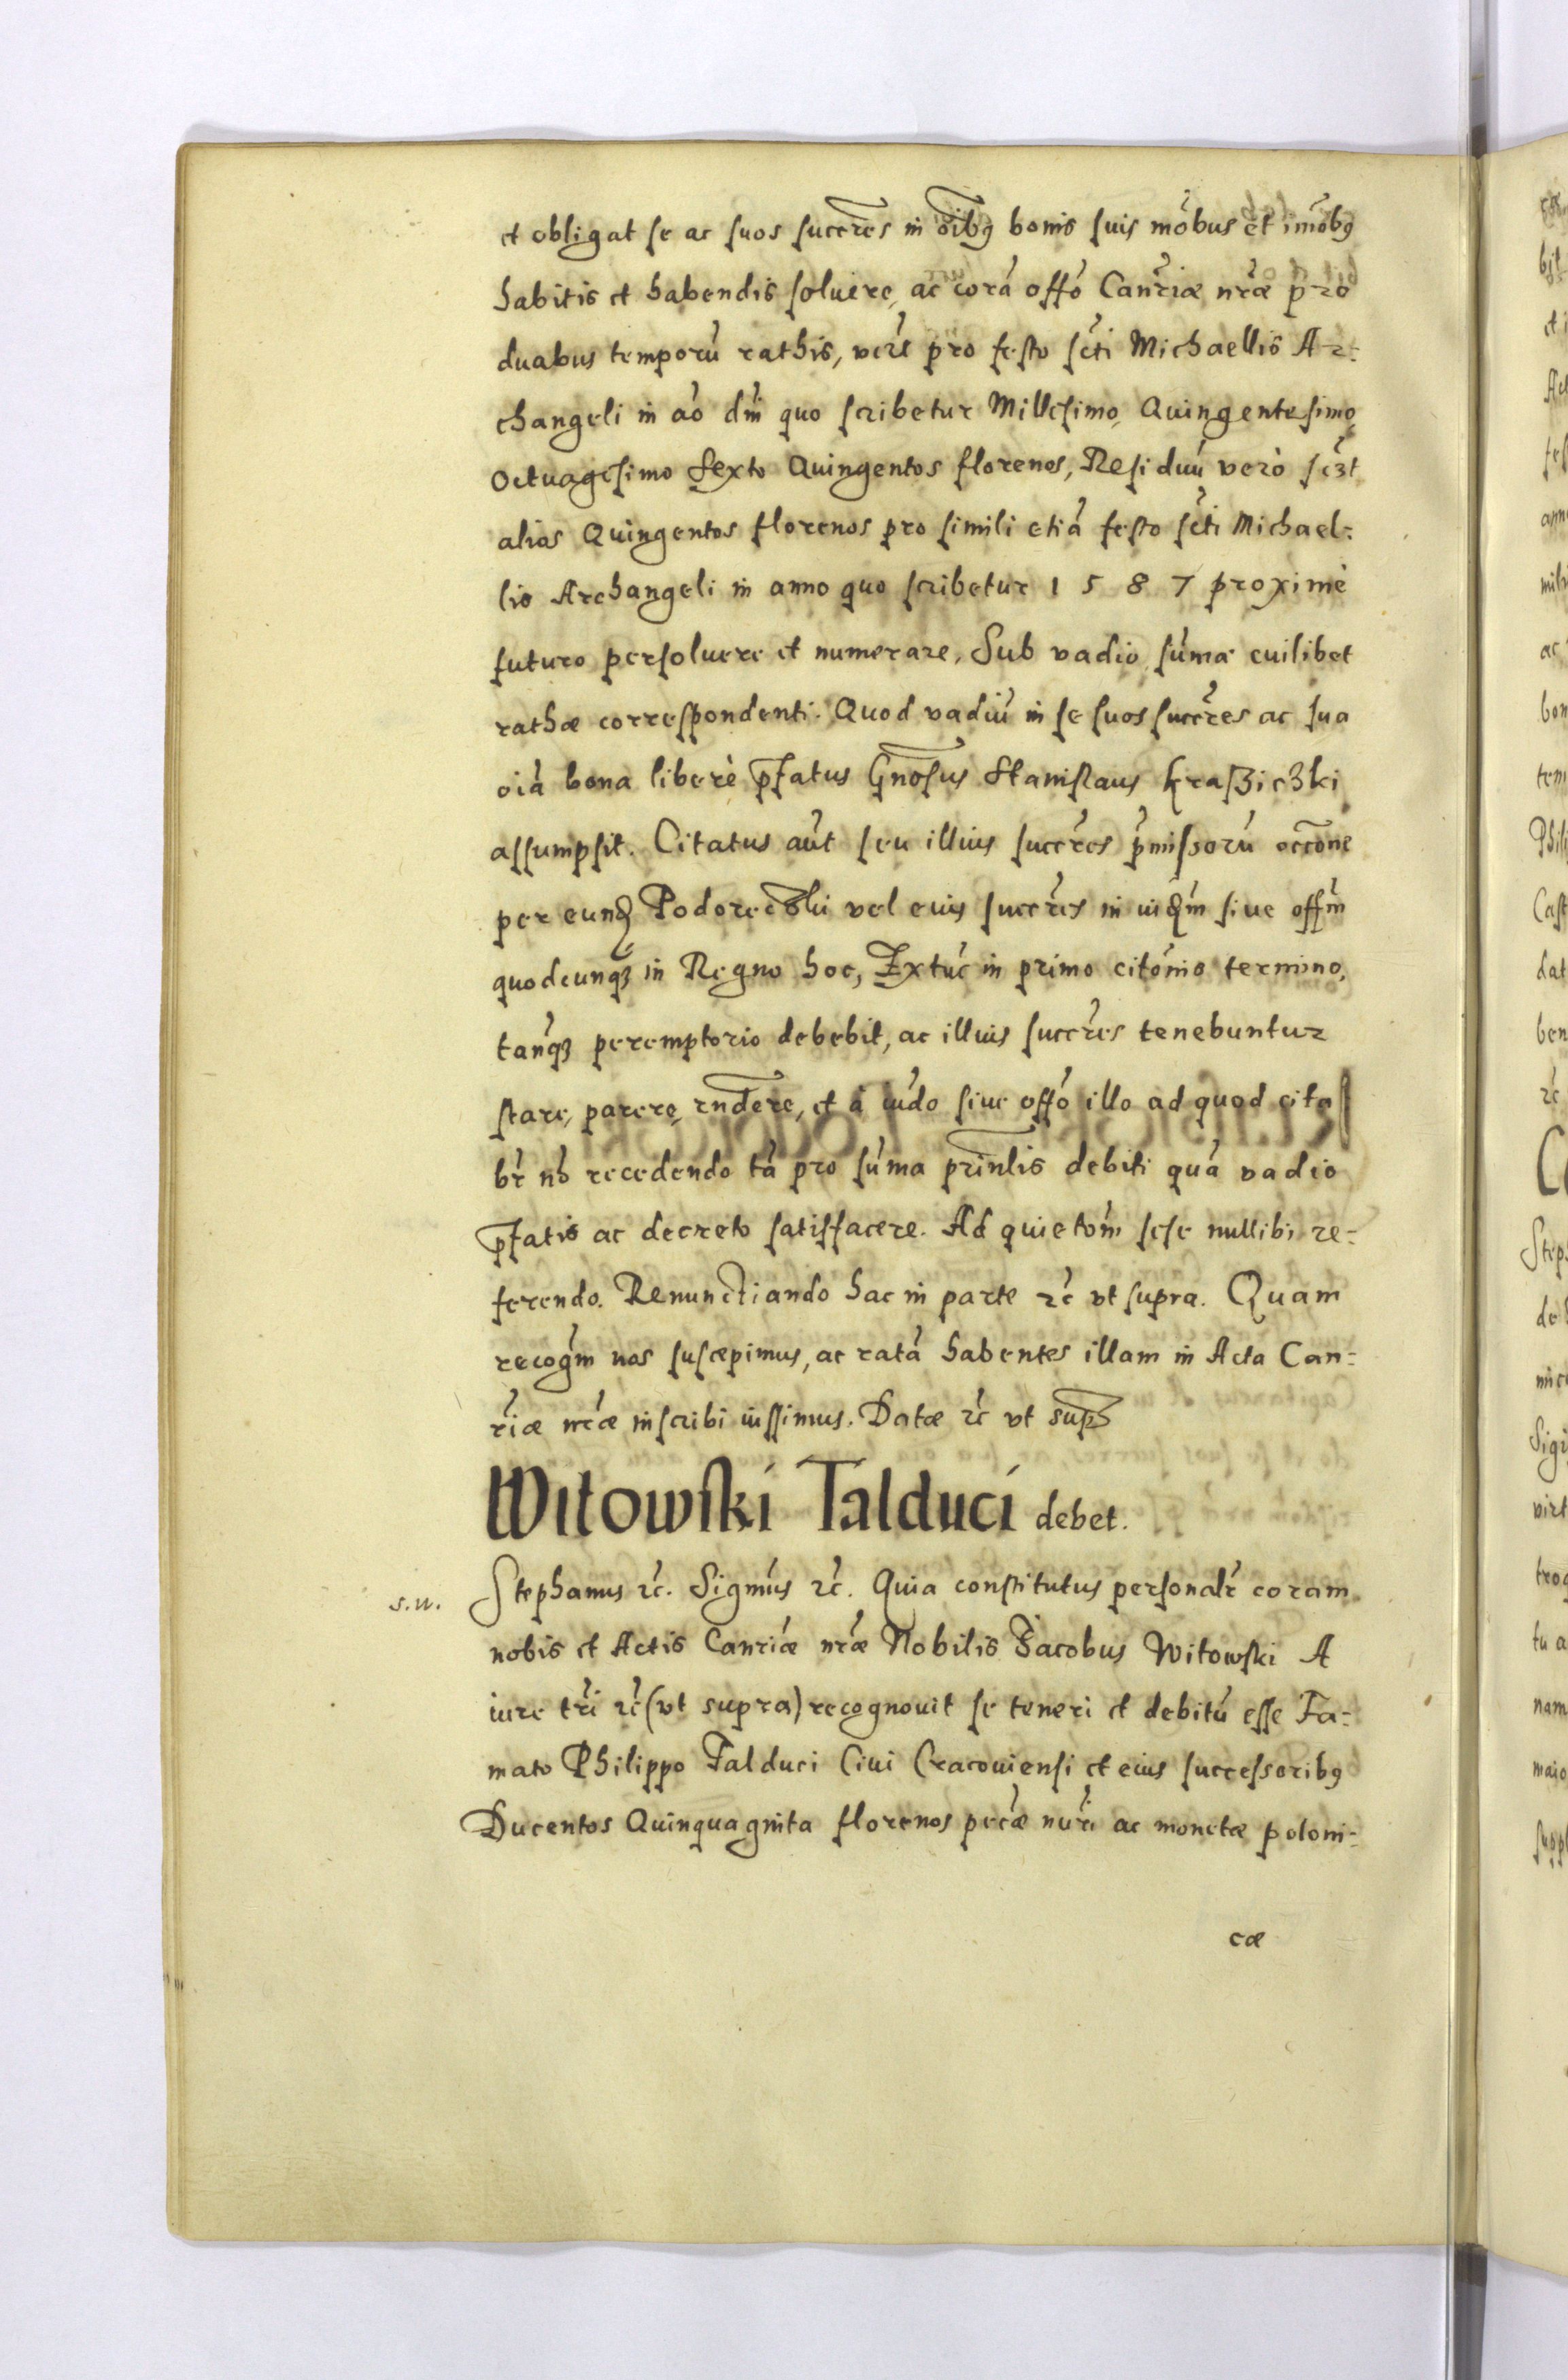 et obligat se ac suos succr̃es in oĩbꝰ bonis suis mõbus et im̃obꝰ
habitis et habendis soluere, ac corã offõ Canr̃iæ nr̃æ pro
duabus temporũ rathis, ver̃s pro festo scĩ Michaellis Ar-
changeli in añõ dñi quo scribetur Millesimo, Quingentesimo,
Octuagesimo Sexto Quingentos florenos, Residuũ verò scꝫt
alios Quingentos florenos pro simili etiã festo sctĩ Michael-
lis Archangeli in anno quo scribetur 1587 proximè
futuro persoluere et numerare, Sub vadio sũmæ cuilibet
rathæ correspondenti. Quod vadiũ in se suos succr̃es ac sua
oĩa bona liberè p̃fatus Gñosus Stanislaus Krasziczki
assumpsit. Citatus aũt seu illius succr̃es p̃missorũ occõne
per eunđ Podoreczki vel eius succr̃es in iuđm siue offm̃
quodcunqꝫ in Regno hoc, Extũc in primo citõnis termino,
tanqꝫ peremptorio debebit, ac illius succr̃es tenebuntur
stare, parere, rñdere, et à iuđo siue offõ illo ad quod cita
br̃ nõ recedendo tã pro sũma prinl̃is debiti quã vadio
p̃fatis ac decreto satisfacere. Ad quietõm sese nullibi re-
ferendo. Renunctiando hac in parte ꝛc̃ vt supra. Quam
recogm̃ nos suscepimus, ac ratã habentes illam in Acta Can-
r̃iæ nr̃æ inscribi iussimus. Datæ ꝛc̃ vt sup̃
Witowski Talduci debet.
s.n. Stephanus ꝛc̃. Sigm̃us ꝛc̃. Quia constitutus personalr̃ coram
nobis et Actis Canr̃iæ nr̃æ Nobilis Jacobus Witowski A
iure tr̃ri ꝛc̃ (vt supra) recognouit se teneri et debitũ esse Fa-
mato Philippo Talduci Ciui Cracouiensi et eius successoribꝰ
Ducentos Quinquaginta florenos pecũæ nũri ac monetæ poloni-
cæ